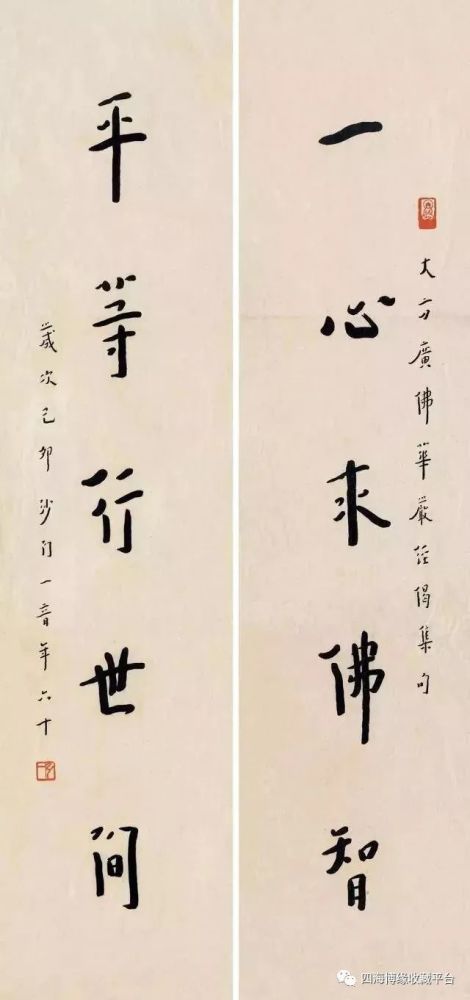 大方廣佛華嚴經偈集句
一心求佛智
平等行世間
歲次己卯沙门一音年六十
四海博缘收藏平台